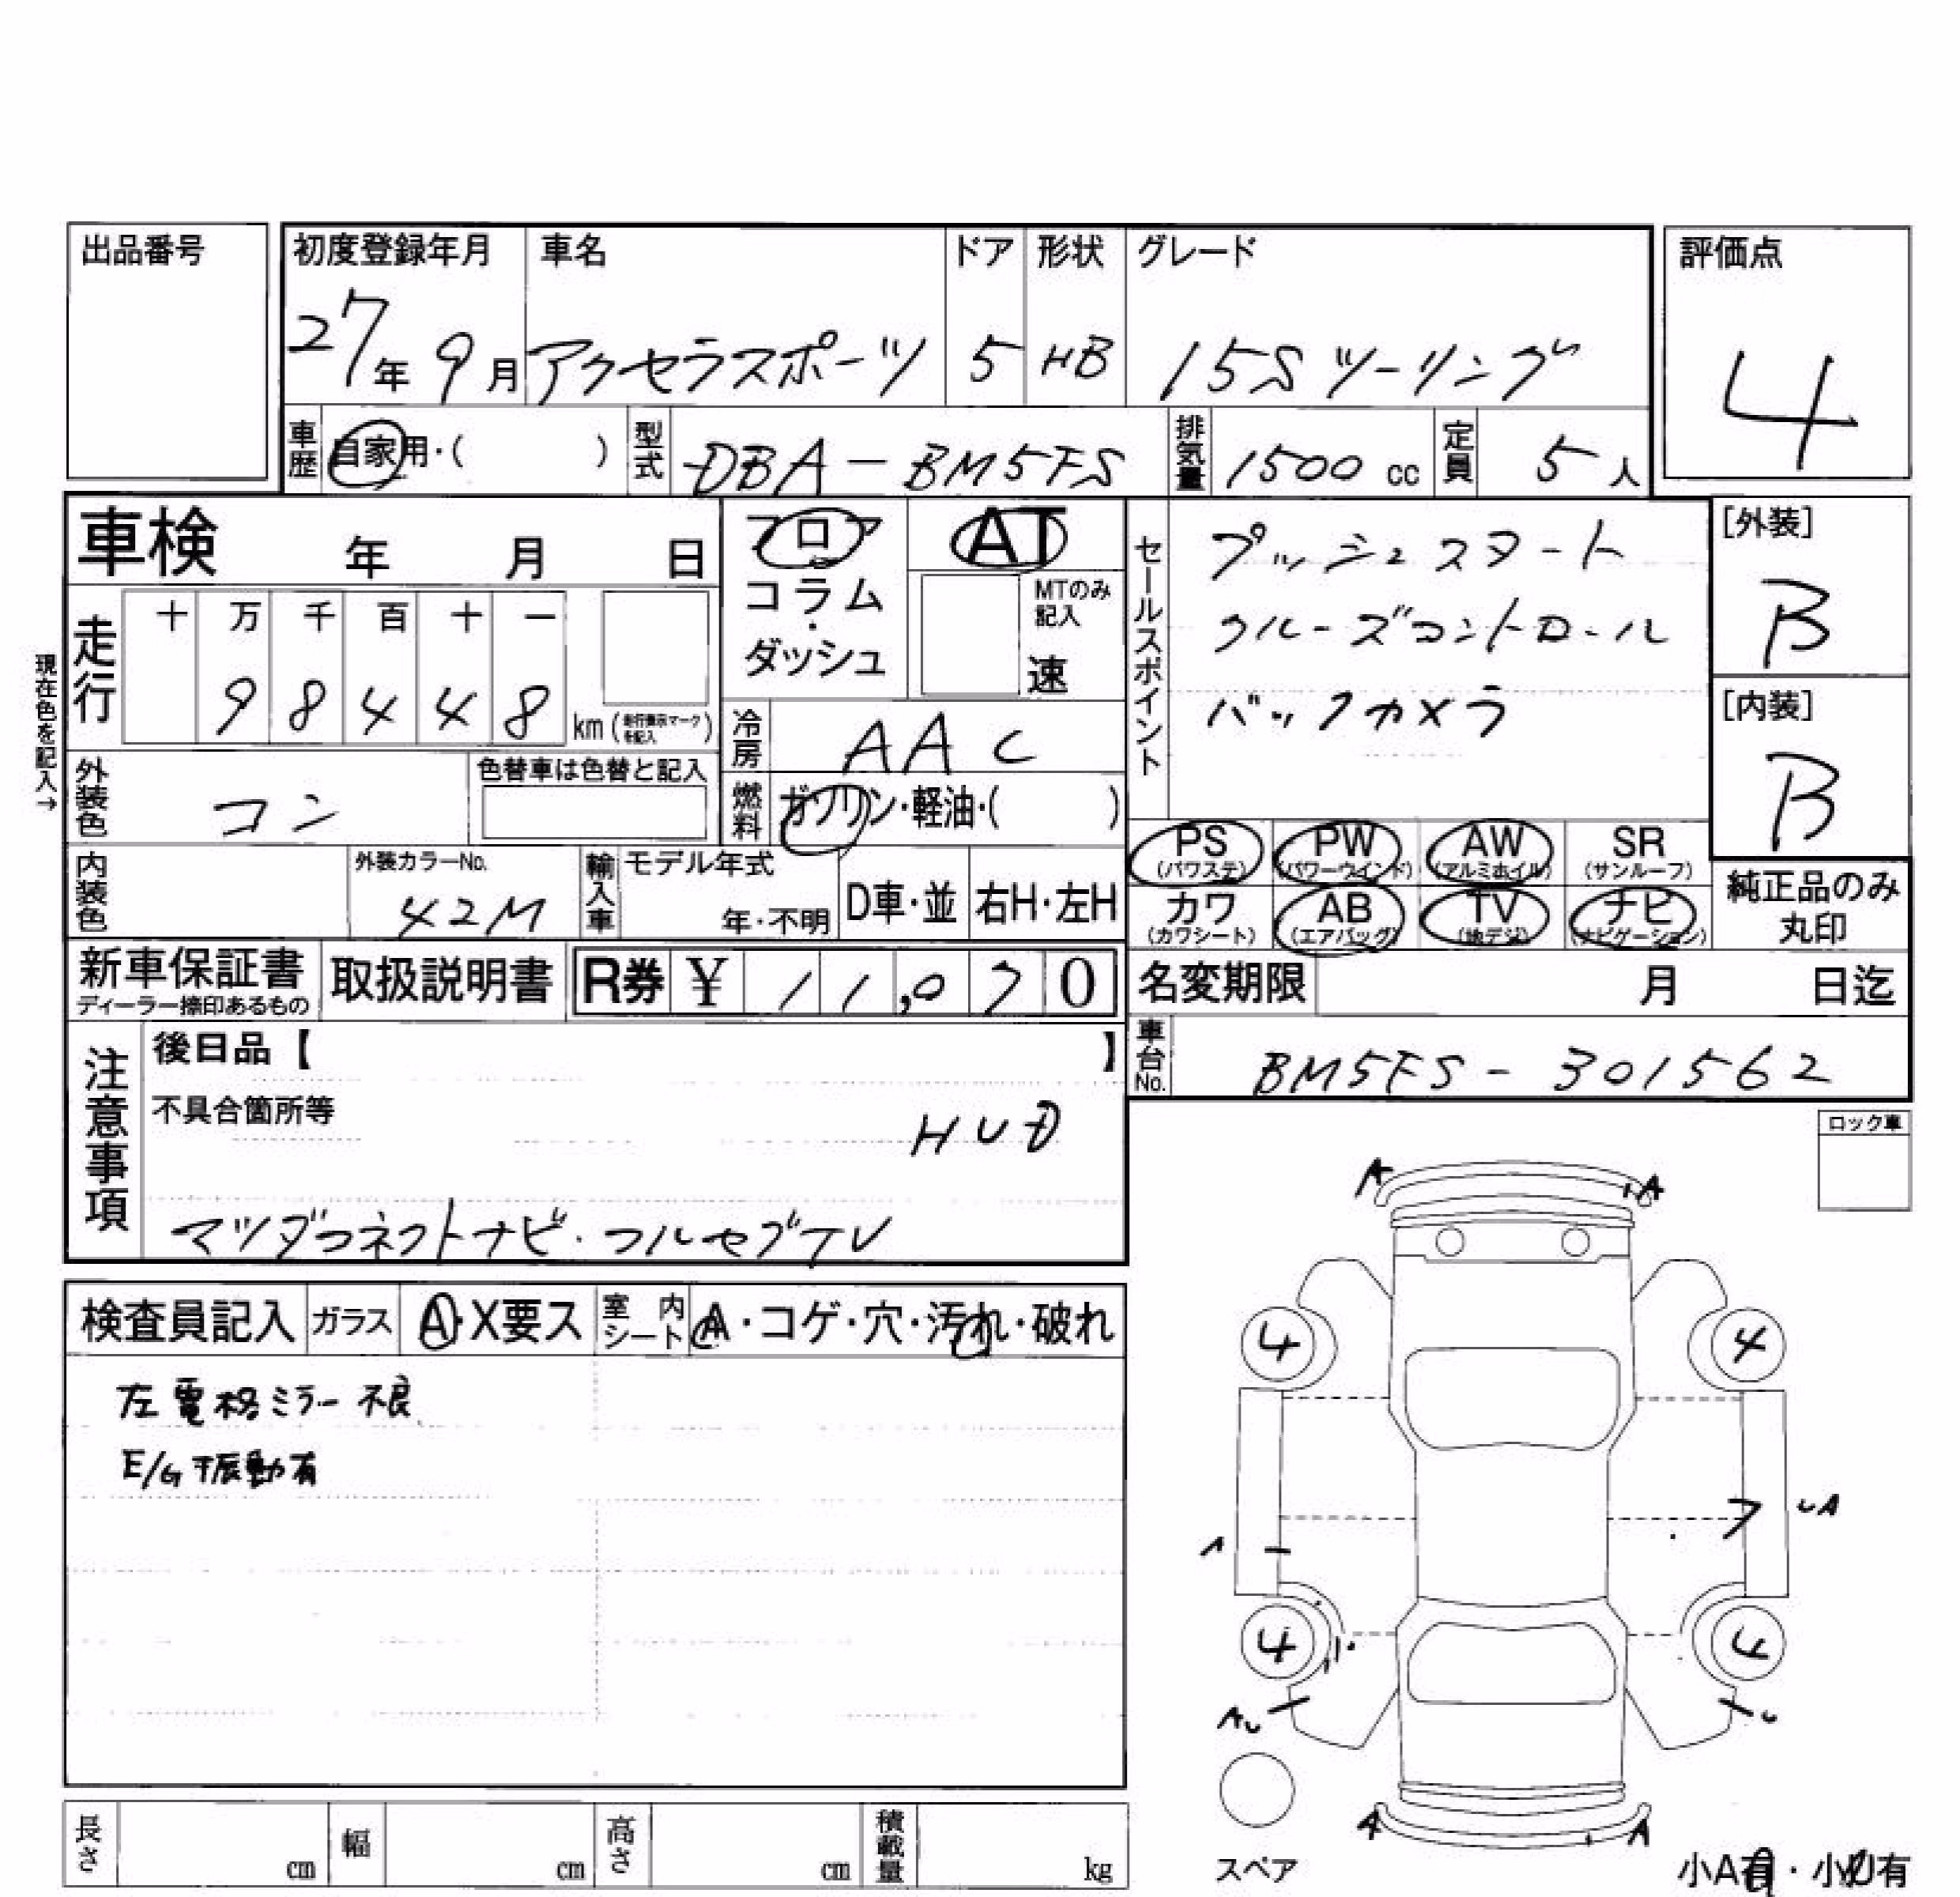 出品番号
初度登録年月 車名 ドア 形状 グレード 評価点
27年9月 アクセラスポーツ 5 HB 15Sツーリング 4
車歴 自家用・( ) 型式 DBA-BM5FS 排気量 1500 cc 定員 5人
車検 年 月 日
フロア AT
コラム・ダッシュ MTのみ記入 速
セールスポイント
プッシュスタート
クルーズコントロール
バックカメラ
[外装]
B
[内装]
B
現在色を記入→
走行 十 万 千 百 十 一
9 8 4 4 8 km(走行表示マークを記入)
冷房 AAC
外装色 コン 色替車は色替と記入
燃料 ガソリン・軽油・( )
PS(パワステ) PW(パワーウインド) AW(アルミホイル) SR(サンルーフ)
カワ(カワシート) AB(エアバッグ) TV(地デジ) ナビ(ナビゲーション)
純正品のみ丸印
内装色 外装カラーNo. 42M 輸入車 モデル年式 年・不明 D車・並 右H・左H
新車保証書 ディーラー捺印あるもの 取扱説明書 R券 ¥ 11,070
名変期限 月 日迄
車台No. BM5FS-301562
注意事項
後日品【 】
不具合箇所等
HUD
マツダコネクトナビ・フルセグTV
ロック車
検査員記入 ガラス A・X要ス 室内シート A・コゲ・穴・汚れ・破れ
左電格ミラー不良
E/G振動有
A A
4 4
UA
A
4 4
AU U
A A
スペア
小A有・小U有
長さ cm 幅 cm 高さ cm 積載量 kg